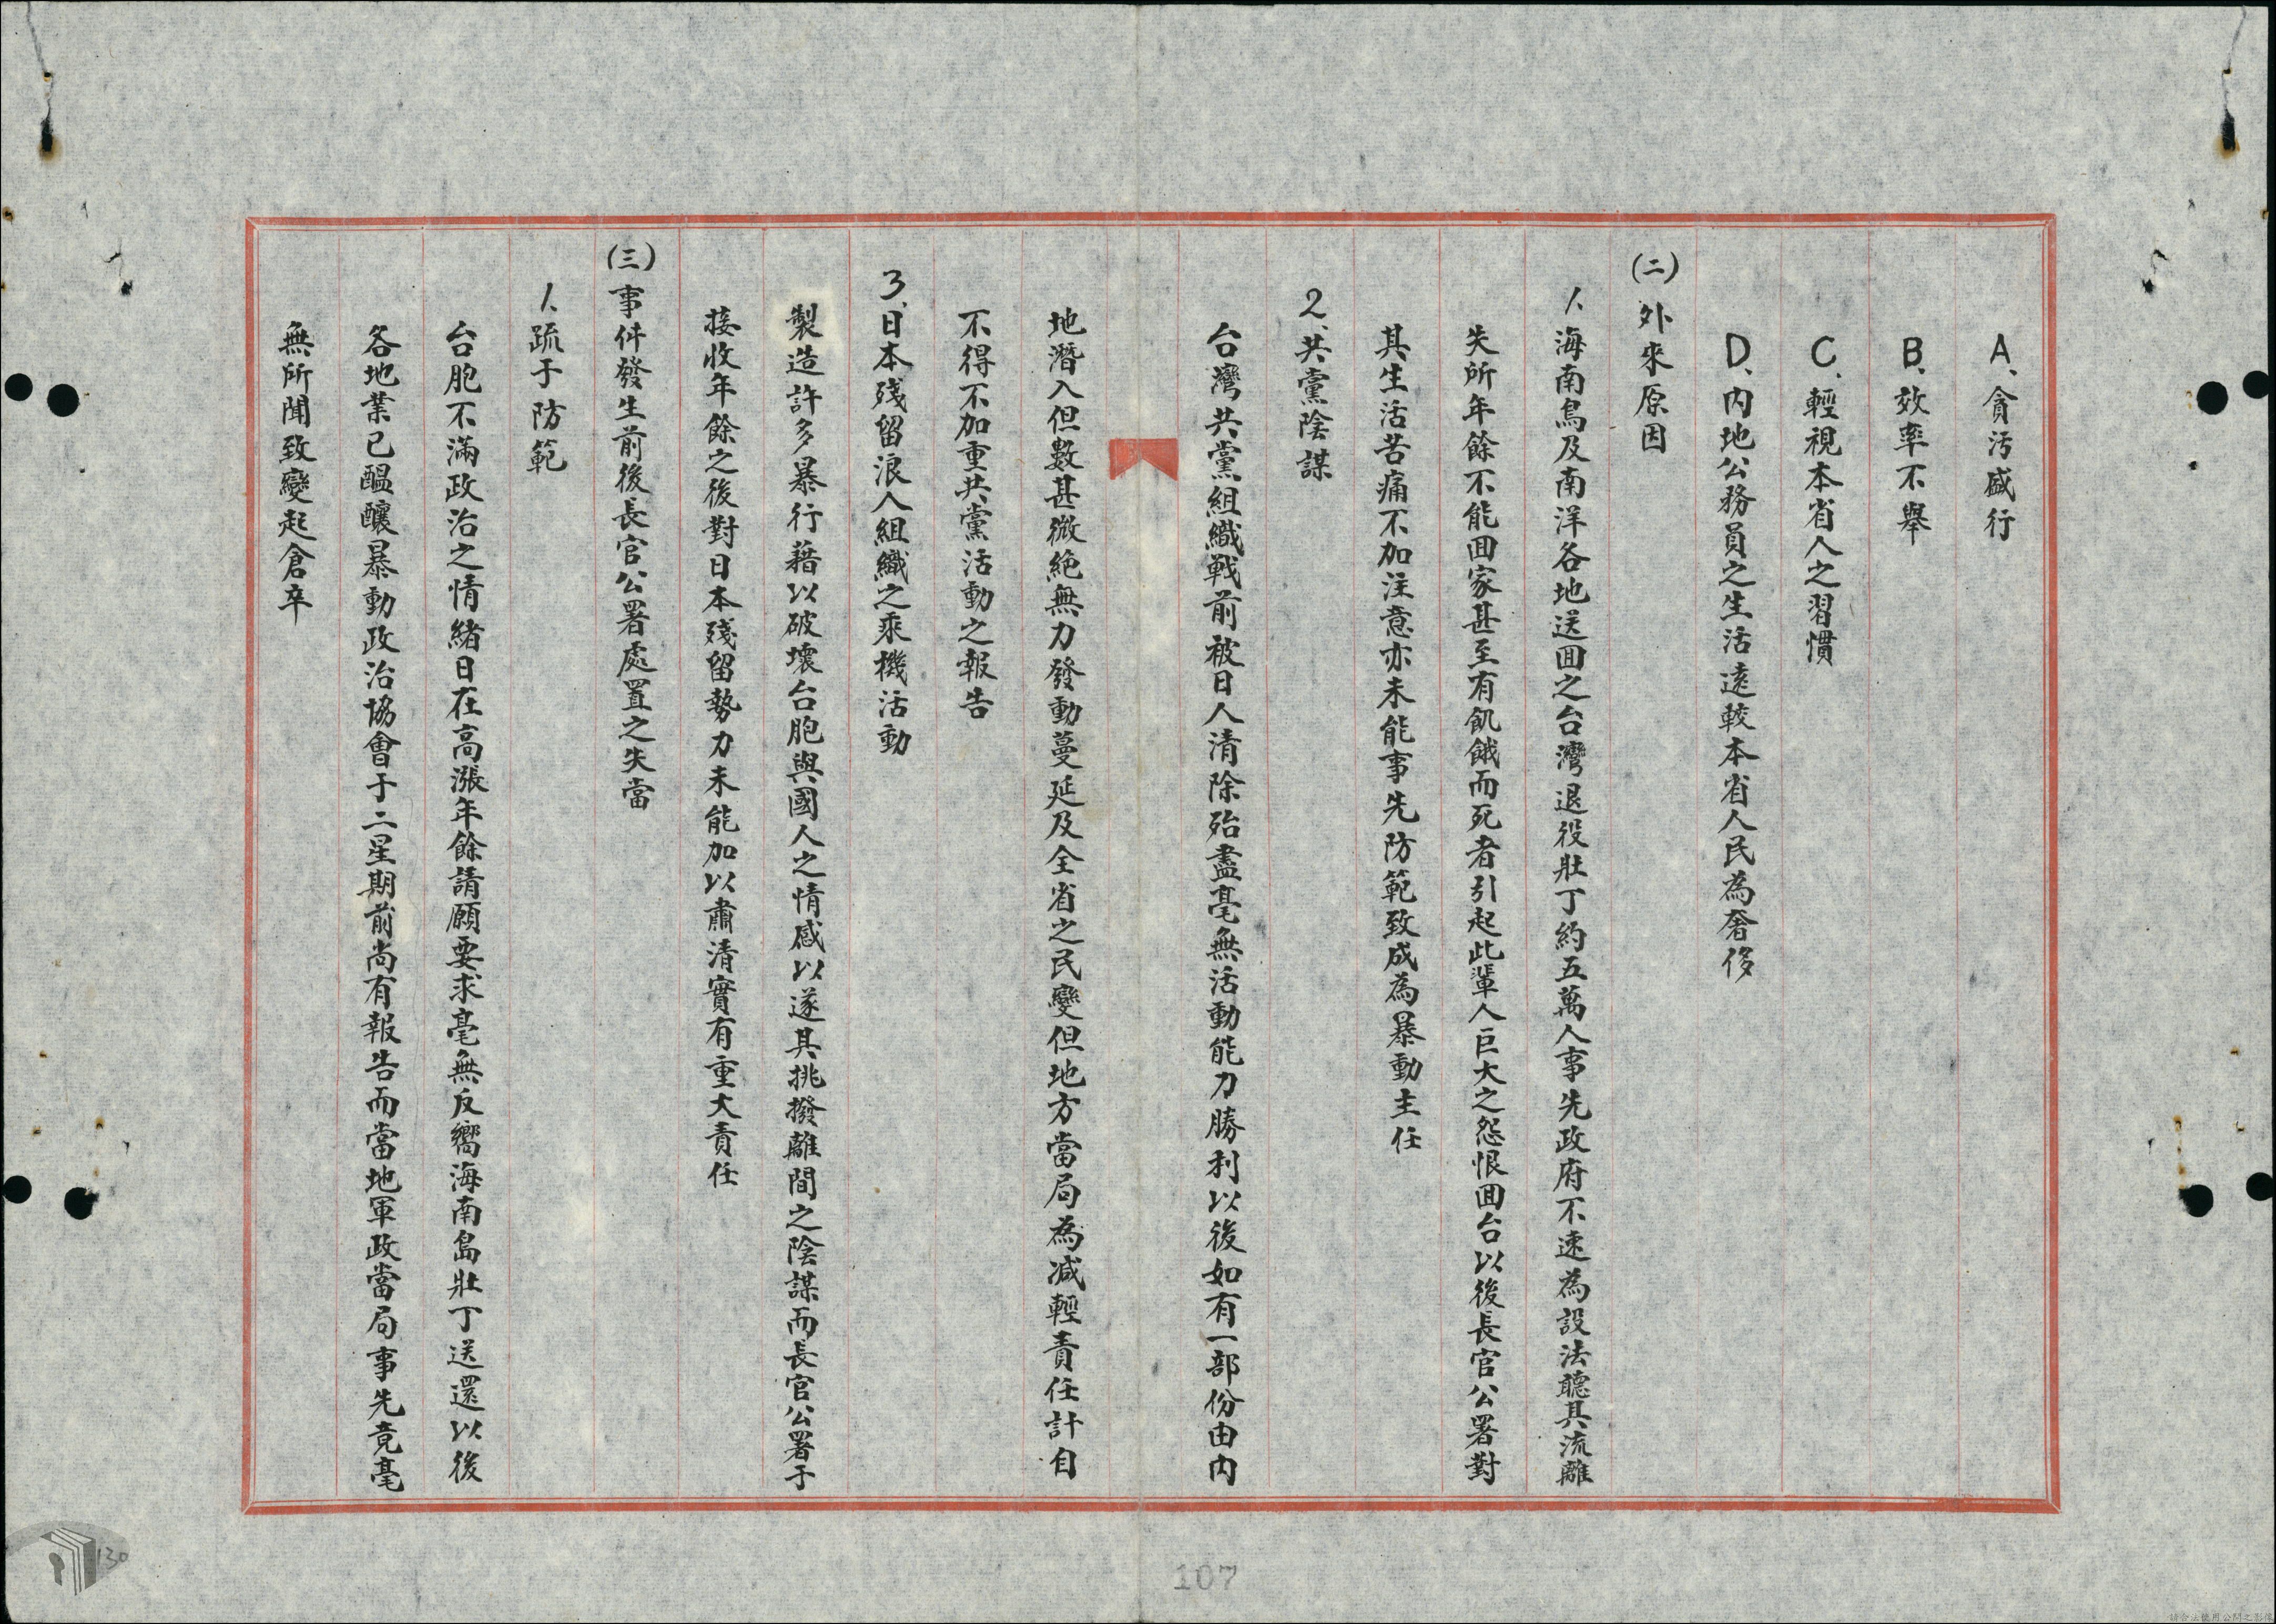 A、貪污盛行
B、效率不舉
C、輕視本省人之習慣
D、內地公務員之生活遠較本省人民為奢侈
(二)外來原因
1、海南島及南洋各地送囬之台灣退役壯丁約五萬人事先政府不速為設法聽其流離
失所年餘不能囬家甚至有飢餓而死者引起此輩人巨大之怨恨囬台以後長官公署對
其生活苦痛不加注意亦未能事先防範致成為暴動主任
2、共黨陰謀
台灣共黨組織戰前被日人清除殆盡毫無活動能力勝利以後如有一部份由內
地潛入但數甚微絕無力發動蔓延及全省之民變但地方當局為減輕責任計自
不得不加重共黨活動之報告
3、日本殘留浪人組織之乘機活動
製造許多暴行藉以破壞台胞與國人之情感以遂其挑撥離間之陰謀而長官公署于
接收年餘之後對日本殘留勢力未能加以肅清實有重大責任
(三)事件發生前後長官公署處置之失當
1、疏于防範
台胞不滿政治之情緒日在高漲年餘請願要求毫無反嚮海南島壯丁送還以後
各地業已醞釀暴動政治協會于二星期前尚有報告而當地軍政當局事先竟毫
無所聞致變起倉卒
107
130
請合法使用公開之影像